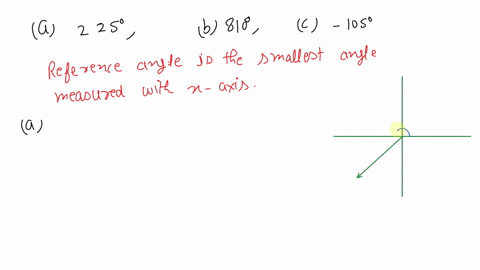 (a) 225°, (b) 810°, (c) -105°
Reference angle is the smallest angle
measured with x-axis.
(a)